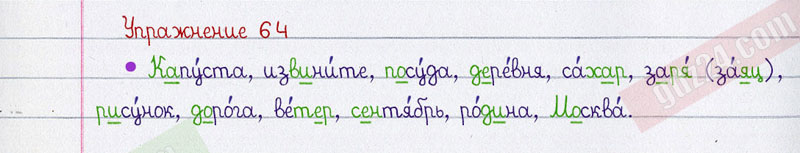 Упражнение 64
• Капу́ста, извини́те, посу́да, дере́вня, са́хар, заря́ (за́яц),
рису́нок, доро́га, ве́тер, сентя́брь, ро́дина, Москва́.
gdz24.com